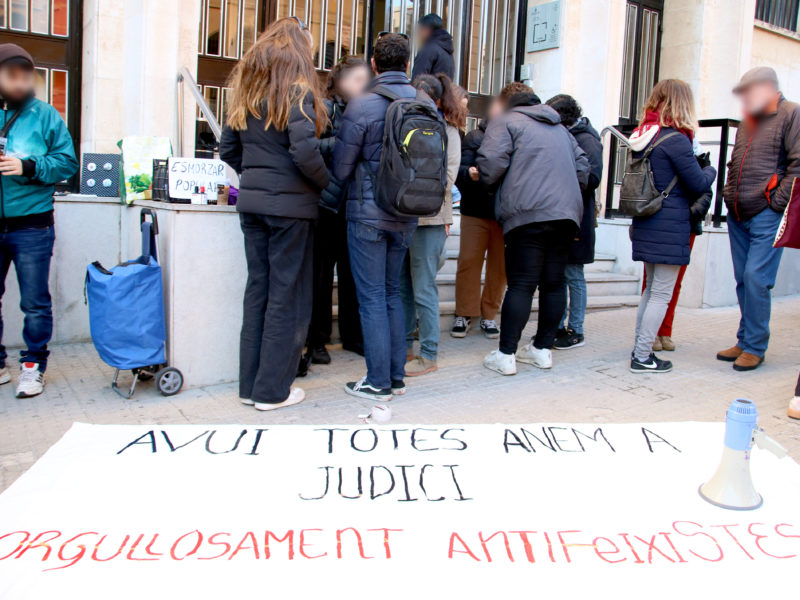 ESMORZAR
POPULAR
AVUI TOTES ANEM A
JUDICI
ORGULLOSAMENT ANTIFeIXISTES